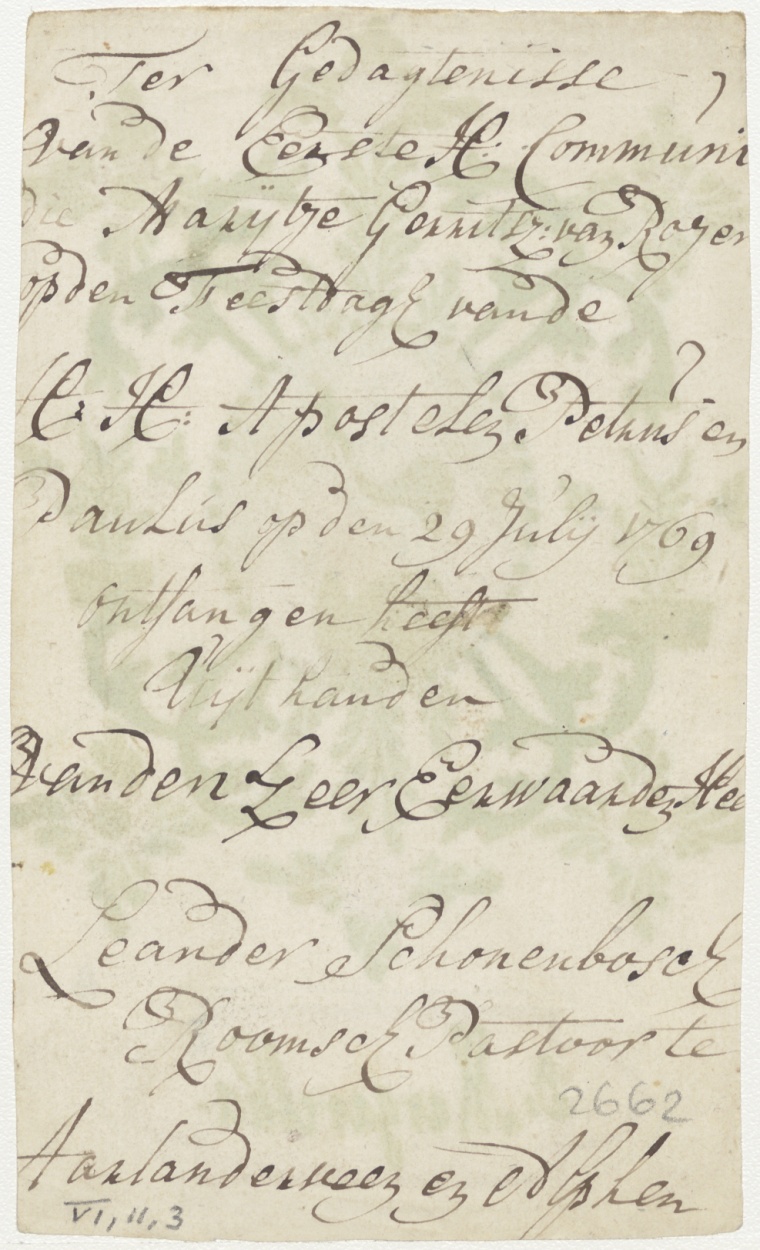 Ter Gedagtenisse
van de Eerste H: Communi
die Marijtje Gerritsz: van Rozen
op den Feestdage van de
H: H: Apostelen Petrus en
Paulus op den 29 Julij 1769
ontfangen heeft
Uijt handen
Van den Zeer Eerwaarden Hee
Leander Schonenbosch
Roomsch Pastoor te
2662
Aarlanderveen en Alphen
VI, 11, 3